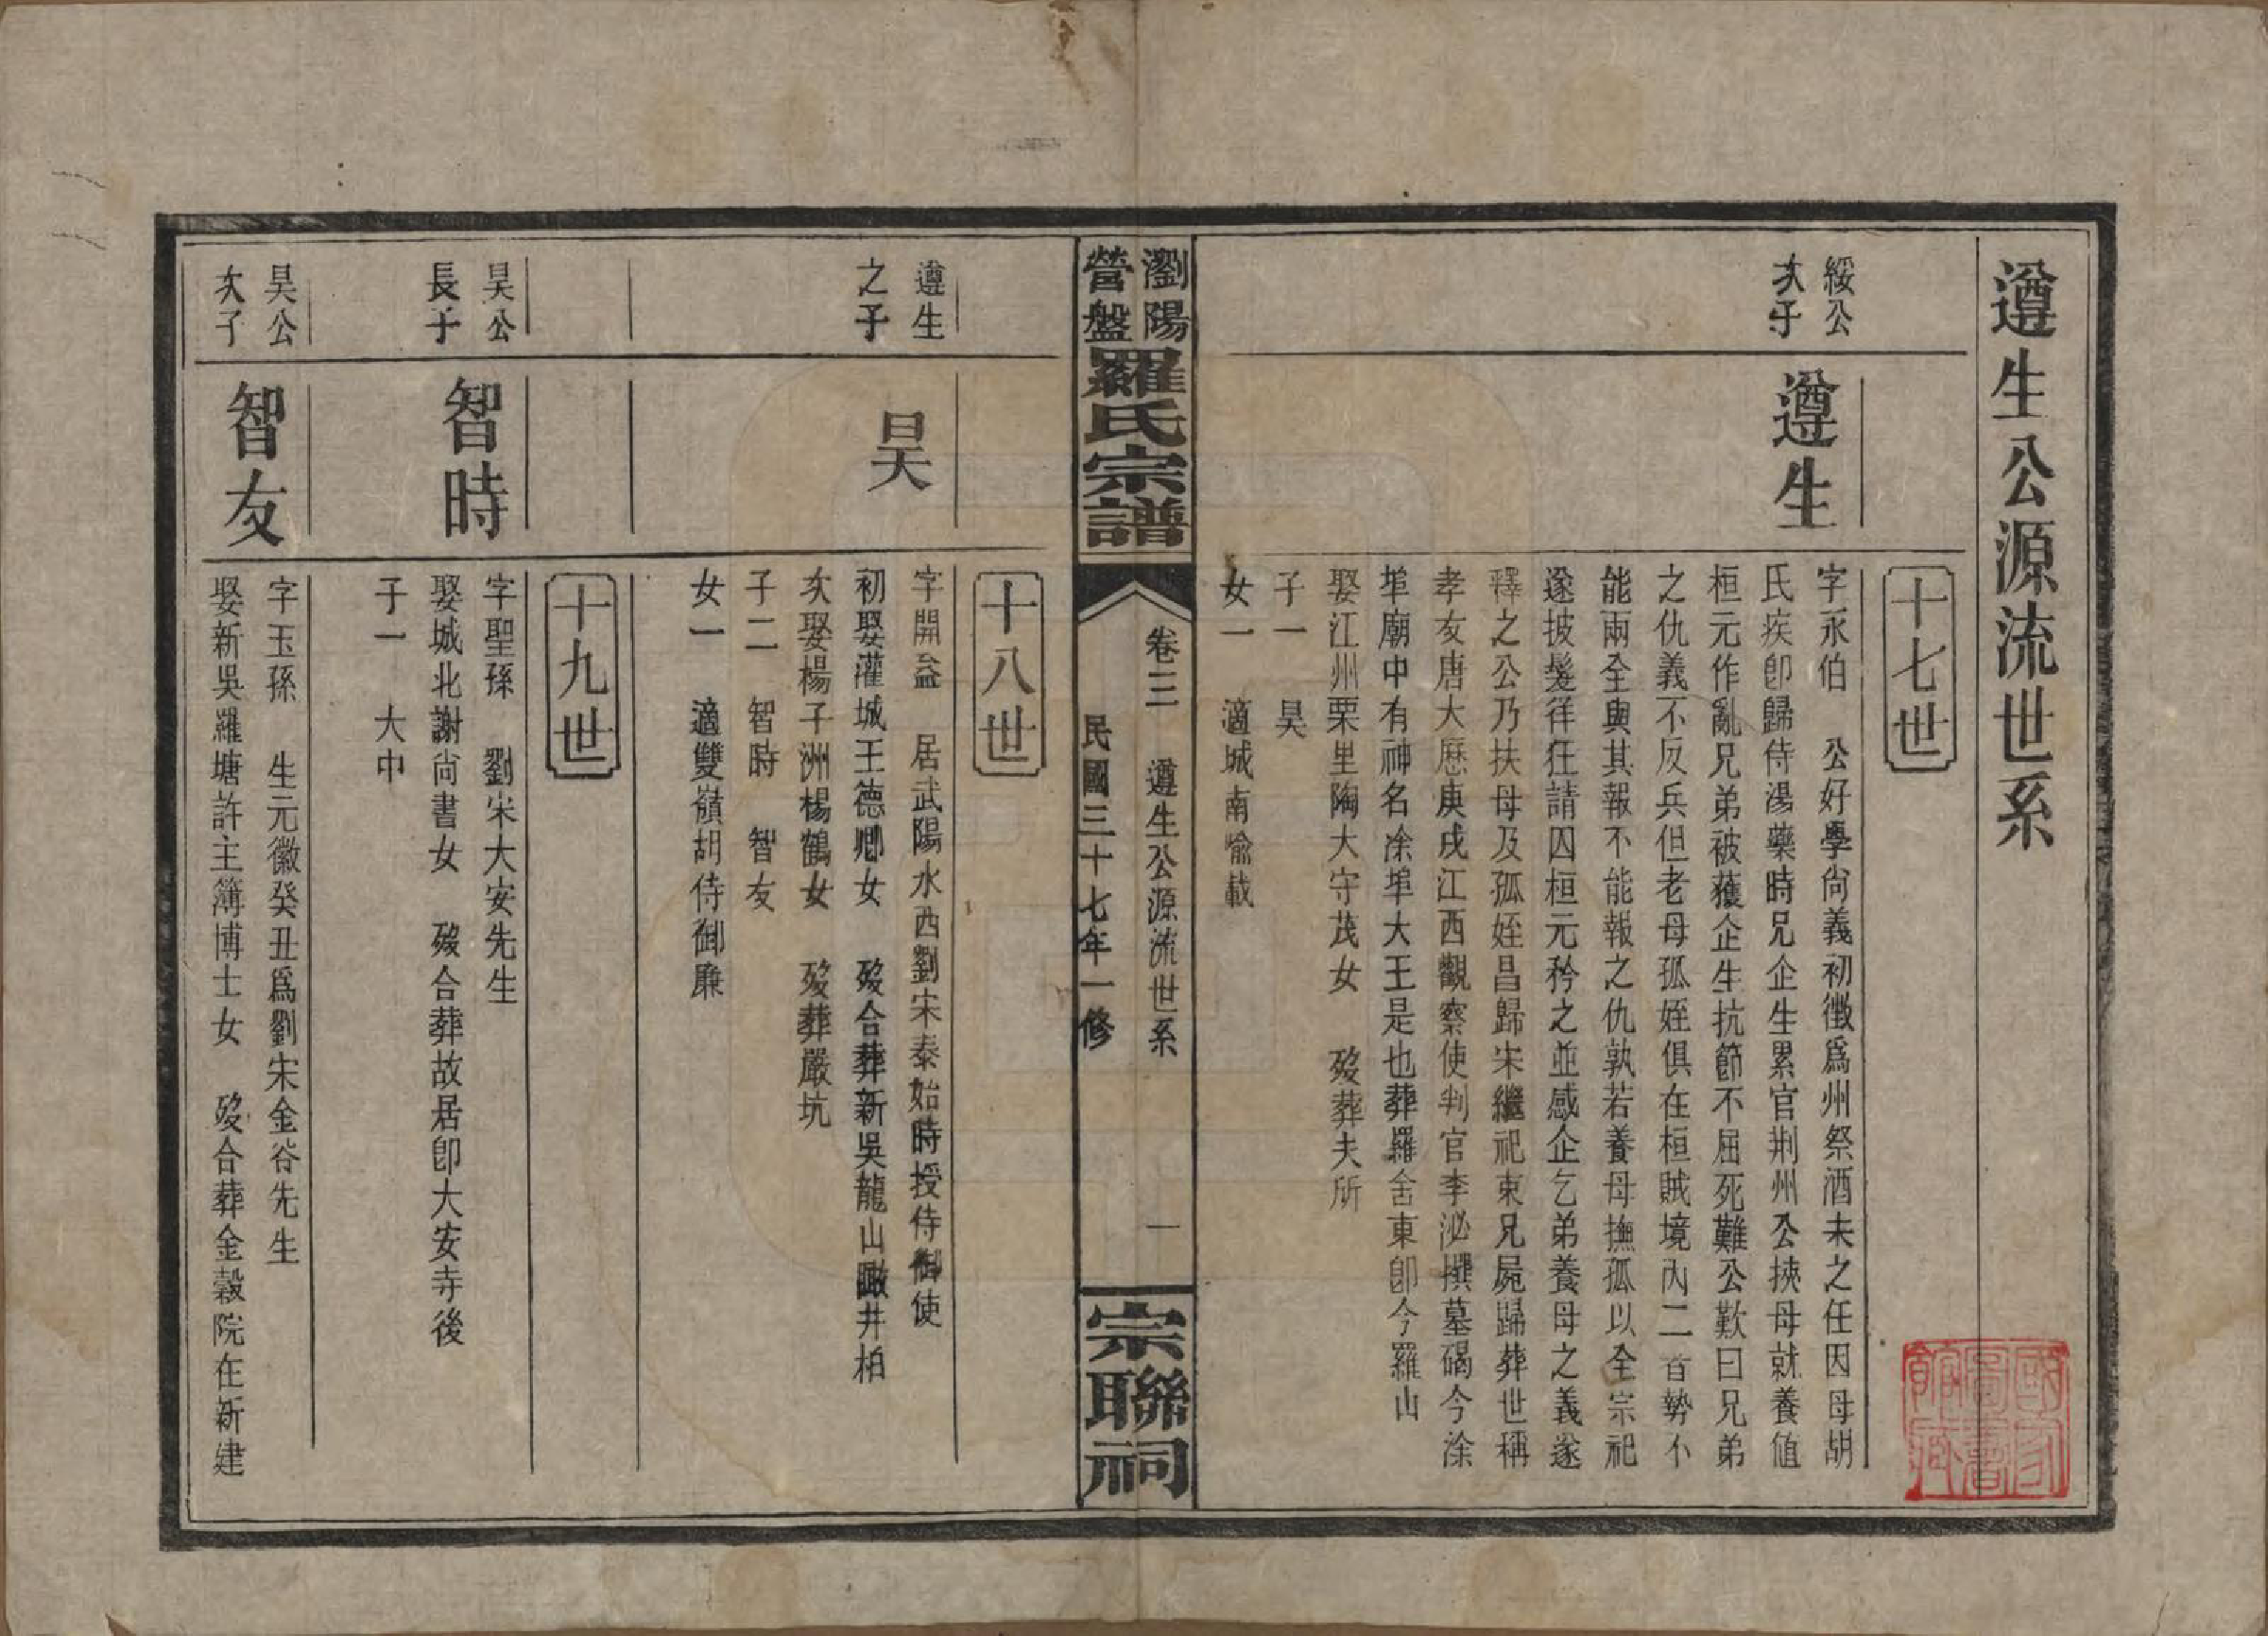 遵生公源流世系
十七世
綏公
次子
遵生
字永伯　公好學尙義初徵爲州祭酒未之任因母胡
氏疾卽歸侍湯藥時兄企生累官荆州公挾母就養値
桓元作亂兄弟被獲企生抗節不屈死難公歎曰兄弟
之仇義不反兵但老母孤姪俱在桓賊境內二首勢不
能兩全與其報不能報之仇孰若養母撫孤以全宗祀
遂披髮徉狂請囚桓元矜之並感企乞弟養母之義遂
釋之公乃扶母及孤姪昌歸宋繼祀東兄屍歸葬世稱
孝友唐大厯庚戌江西觀察使判官李泌撰墓碣今涂
埠廟中有神名涂埠大王是也葬羅舍東卽今羅山
娶江州栗里陶大守茂女　歿葬夫所
子一　昊
女一　適城南喩載
瀏陽
營盤
羅氏宗譜
卷三　遵生公源流世系　一
民國三十七年一修
宗聯祠
十八世
遵生
之子
昊
字開益　居武陽水西劉宋泰始時授侍御使
初娶灌城王德卿女　歿合葬新吳龍山畷井柏
次娶楊子洲楊鶴女　歿葬嚴坑
子二　智時　智友
女一　適雙嶺胡侍御廉
十九世
昊公
長子
智時
字聖孫　劉宋大安先生
娶城北謝尙書女　歿合葬故居卽大安寺後
子一　大中
昊公
次子
智友
字玉孫　生元徽癸丑爲劉宋金谷先生
娶新吳羅塘許主簿博士女　歿合葬金穀院在新建
國家圖書館藏